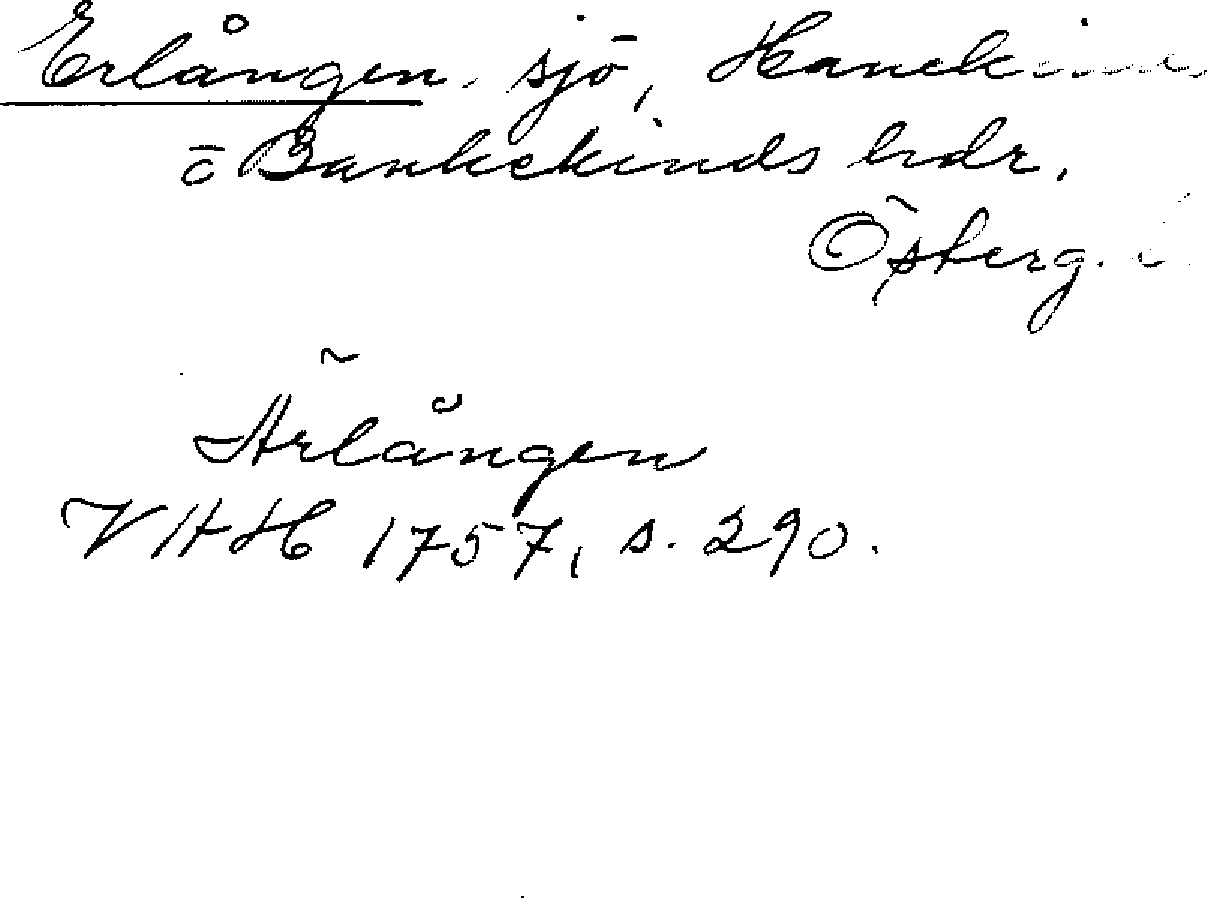 Erlången, sjö, Hanekinds
ö Bankekinds hdr.
Österg. l
Ärlången
VHH 1757, s. 290.